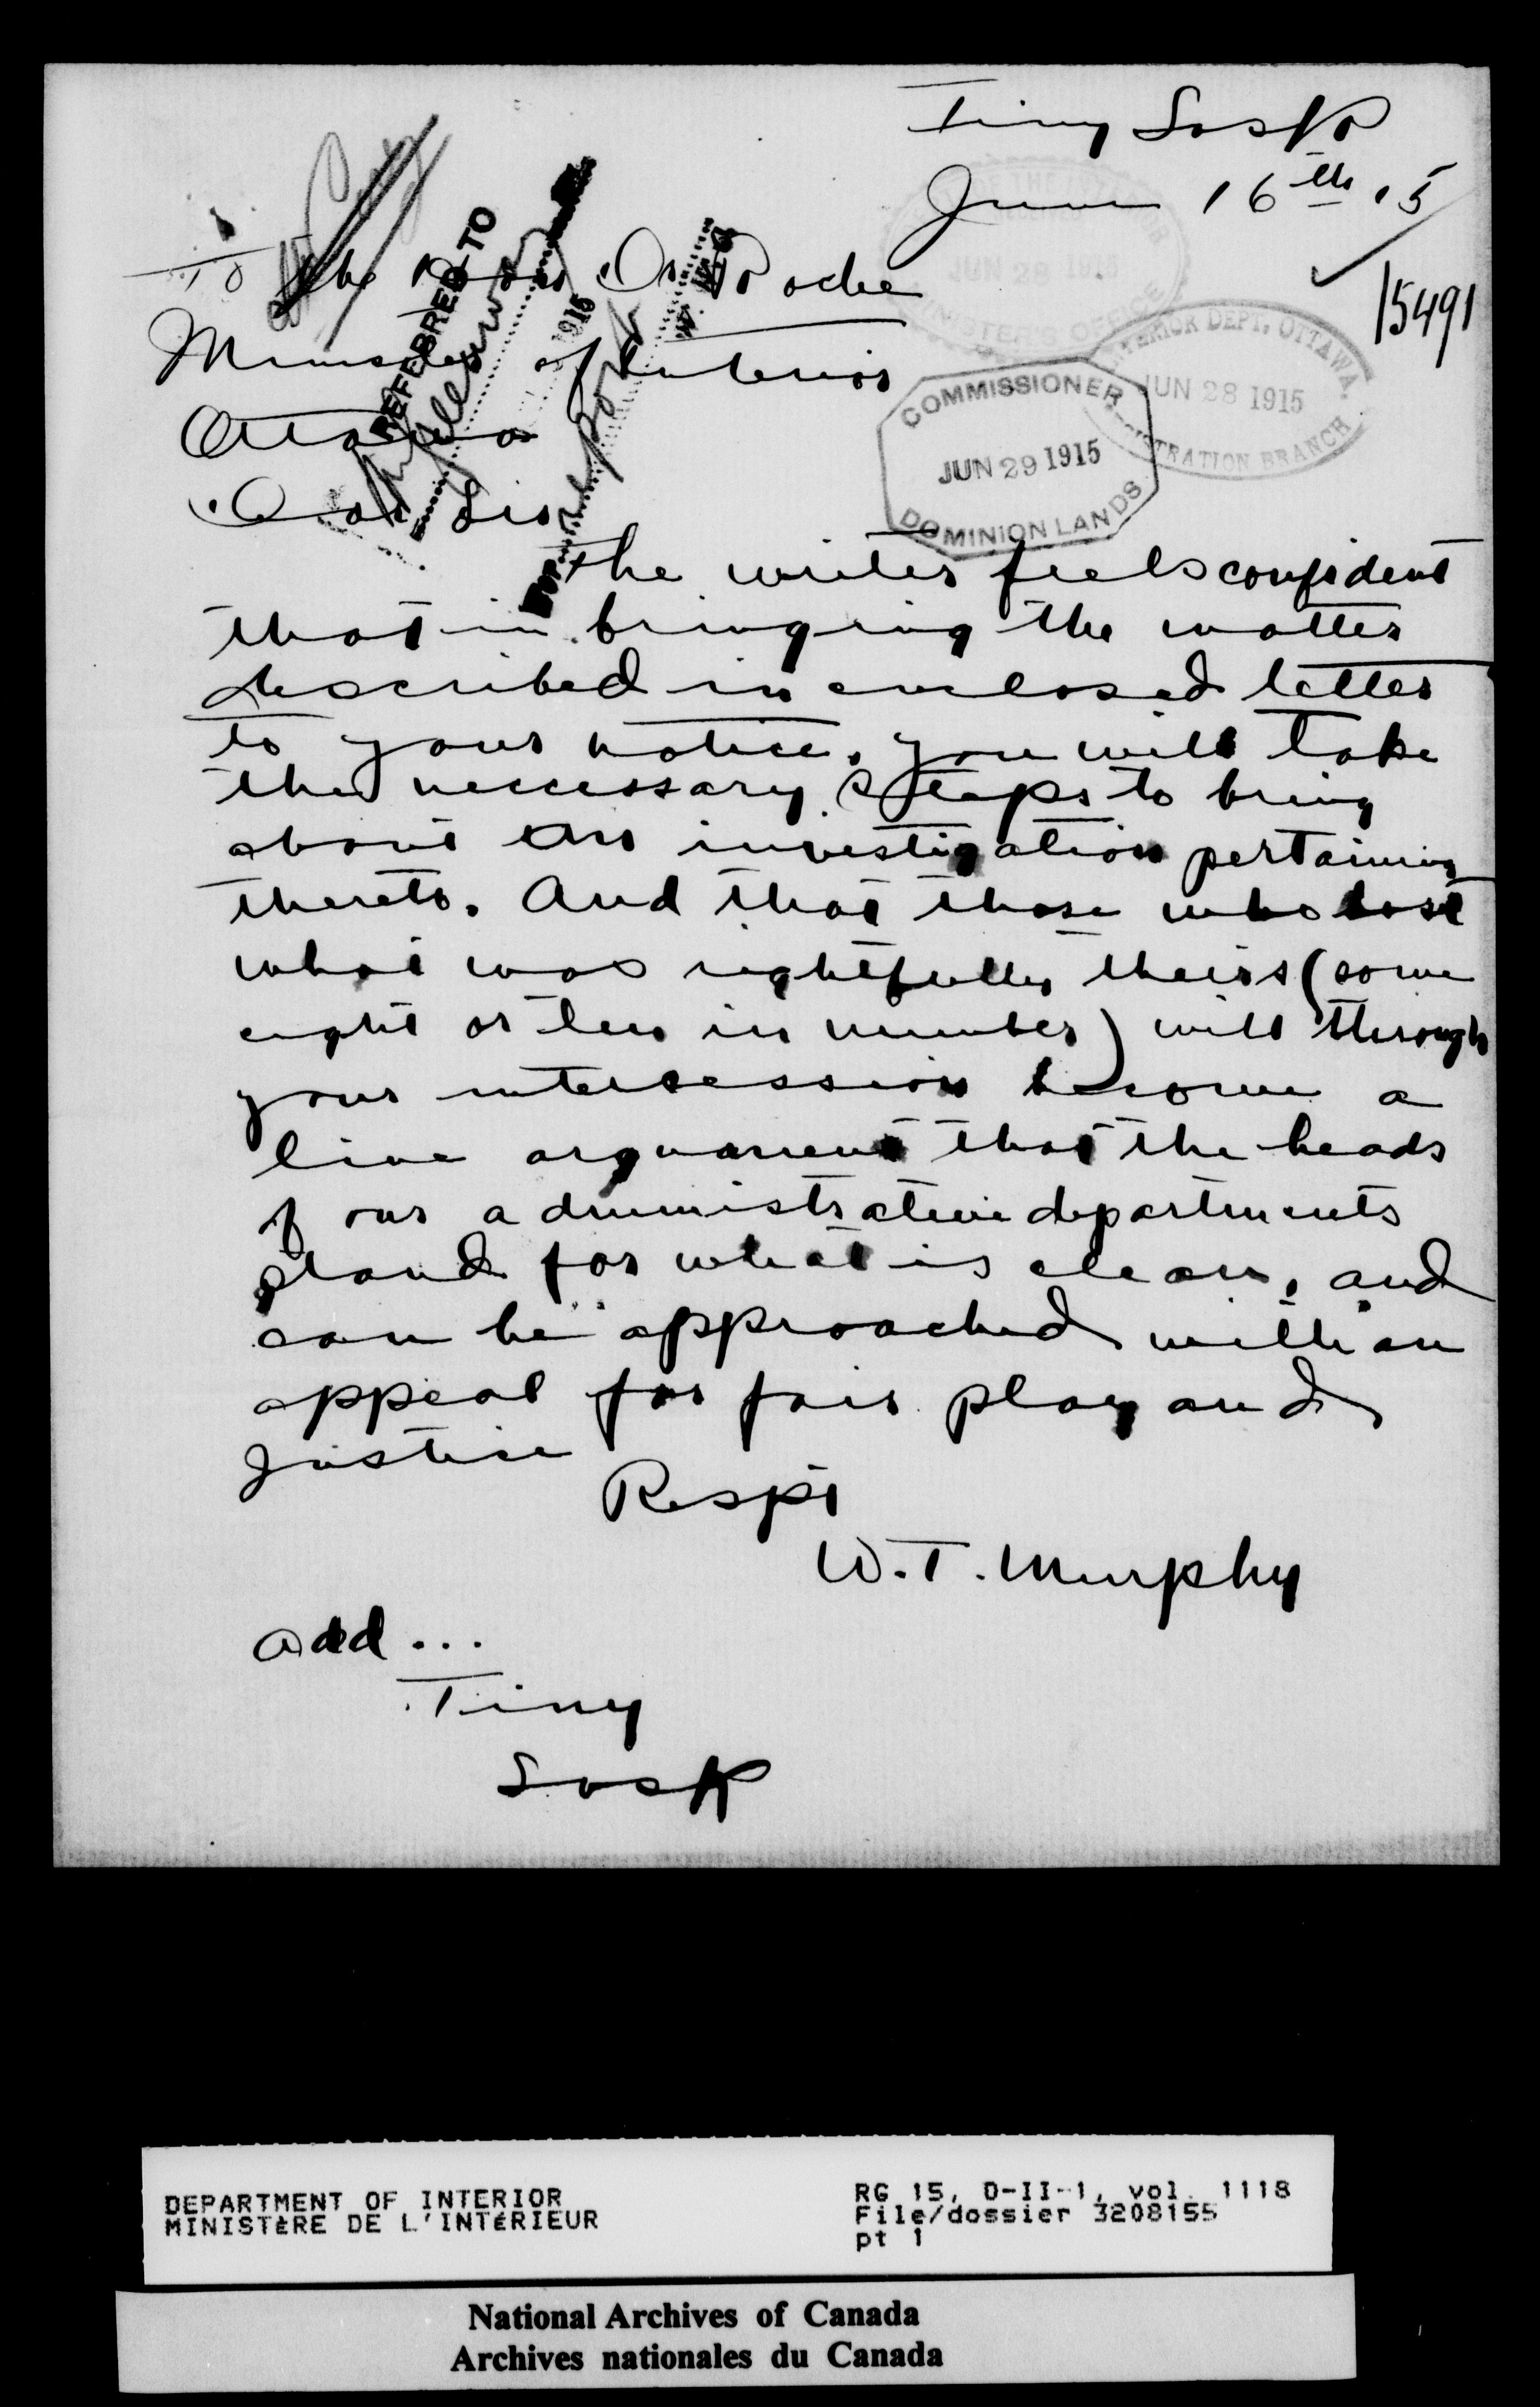 Tiny Sask
June 16th 15
15491
To the Hon. Dr Roche
Minister of Interior
Ottawa
Dear Sir
REFERRED TO
1915
JUN 28 1915
MINISTER'S OFFICE
INTERIOR DEPT. OTTAWA.
JUN 28 1915
REGISTRATION BRANCH
COMMISSIONER
JUN 29 1915
DOMINION LANDS
The writer feels confident
that in bringing the matter
described in enclosed letter
to your notice, you will take
the neccessary steaps to bring
about an investigation pertaining
thereto. And that those who lost
what was rightfully theirs (some
eight or ten in number) will through
your intercession become a
live arguament that the heads
of our administrative departments
stand for what is clean, and
can be approached with an
appeal for fair play and
Justice
Respt
W.T. Murphy
add...
Tiny
Sask
DEPARTMENT OF INTERIOR
MINISTÈRE DE L'INTÉRIEUR
RG 15, D-II-1, vol. 1118
File/dossier 3208155
pt 1
National Archives of Canada
Archives nationales du Canada